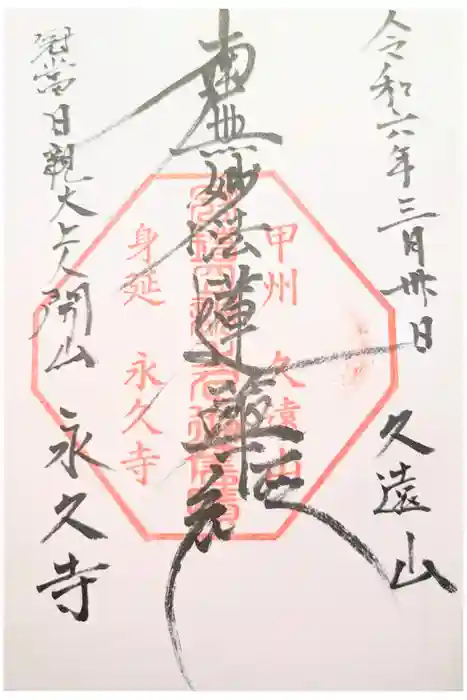 令和六年三月卅日
久遠山
南無妙法蓮華経
日観大上人開山
永久寺
甲州 久遠山
身延 永久寺